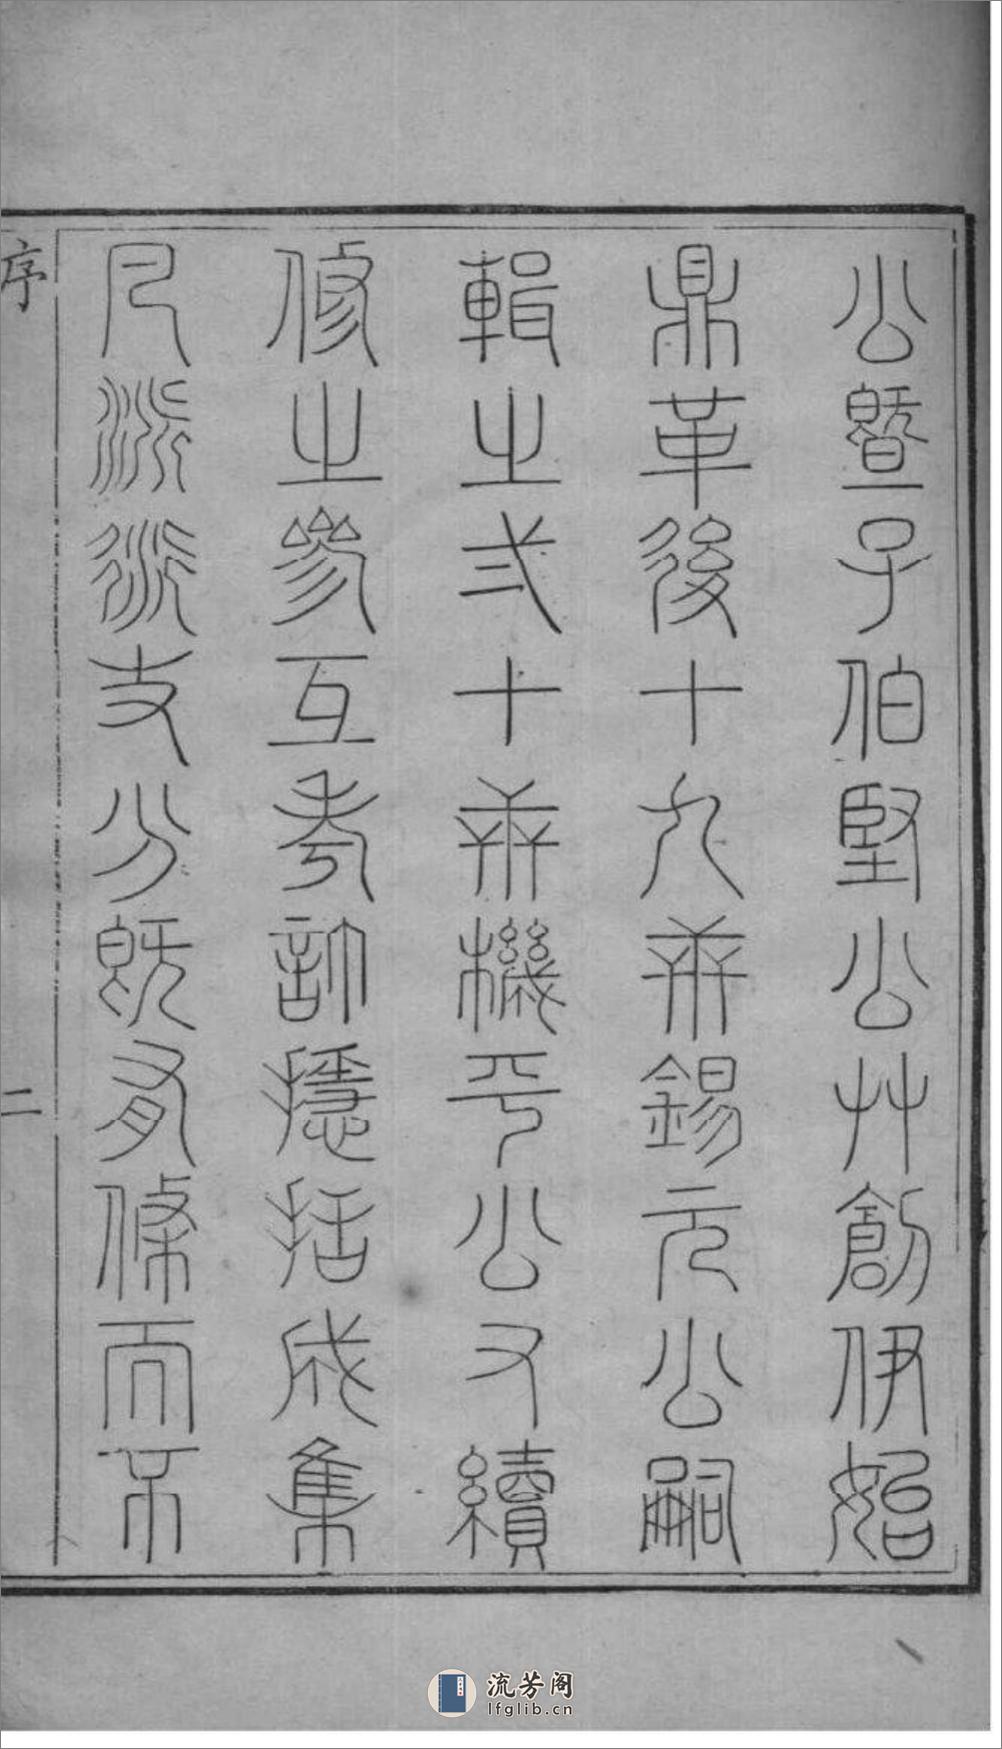 公暨子伯堅公艸創伊始
鼎革後十九年錫元公嗣
輯之弍十年機平公又續
修之參互考訂檃括成集
凡派衍支分既有條而不
序
二
流芳阁
lfglib.cn